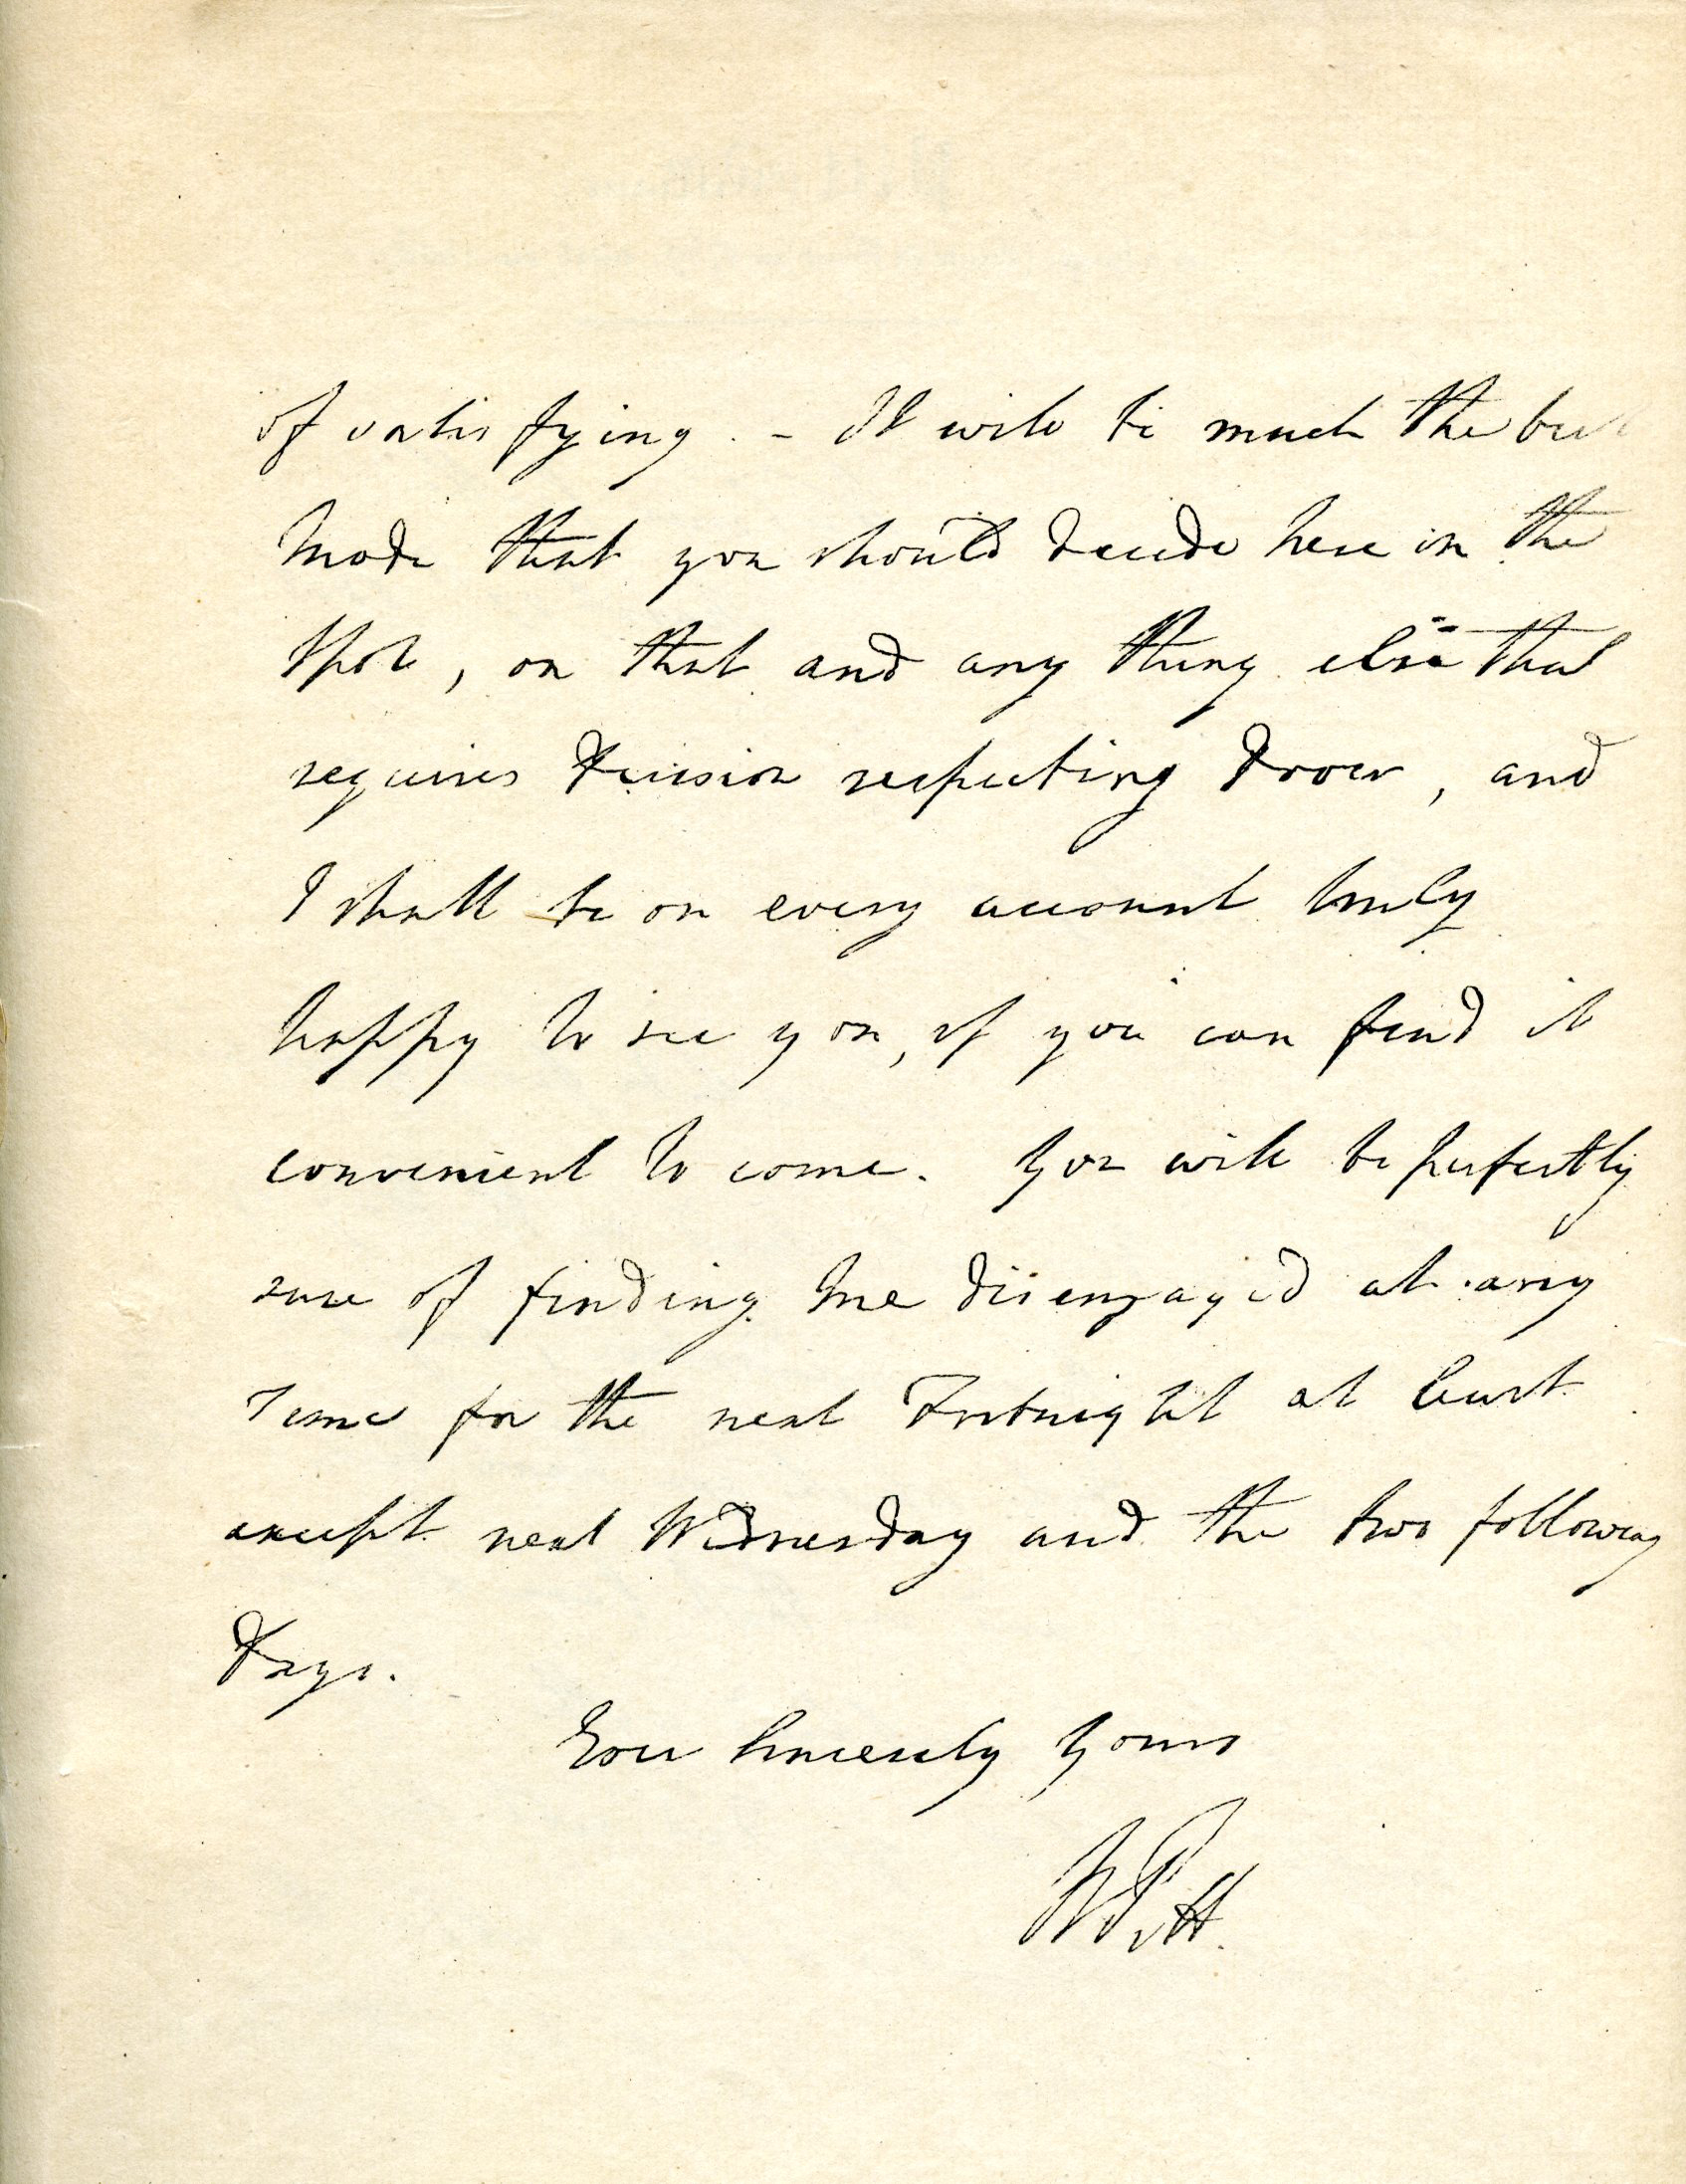 of satisfying. - It will be much the best
Mode that you should decide here on the
Spot, on that and any thing else that
requires Decision respecting Dover, and
I shall be on every account truly
happy to see you, if you can find it
convenient to come. You will be perfectly
sure of finding me disengaged at any
Time for the next Fortnight at least
except next Wednesday and the two following
Days.
Ever Sincerely Yours
W Pitt.